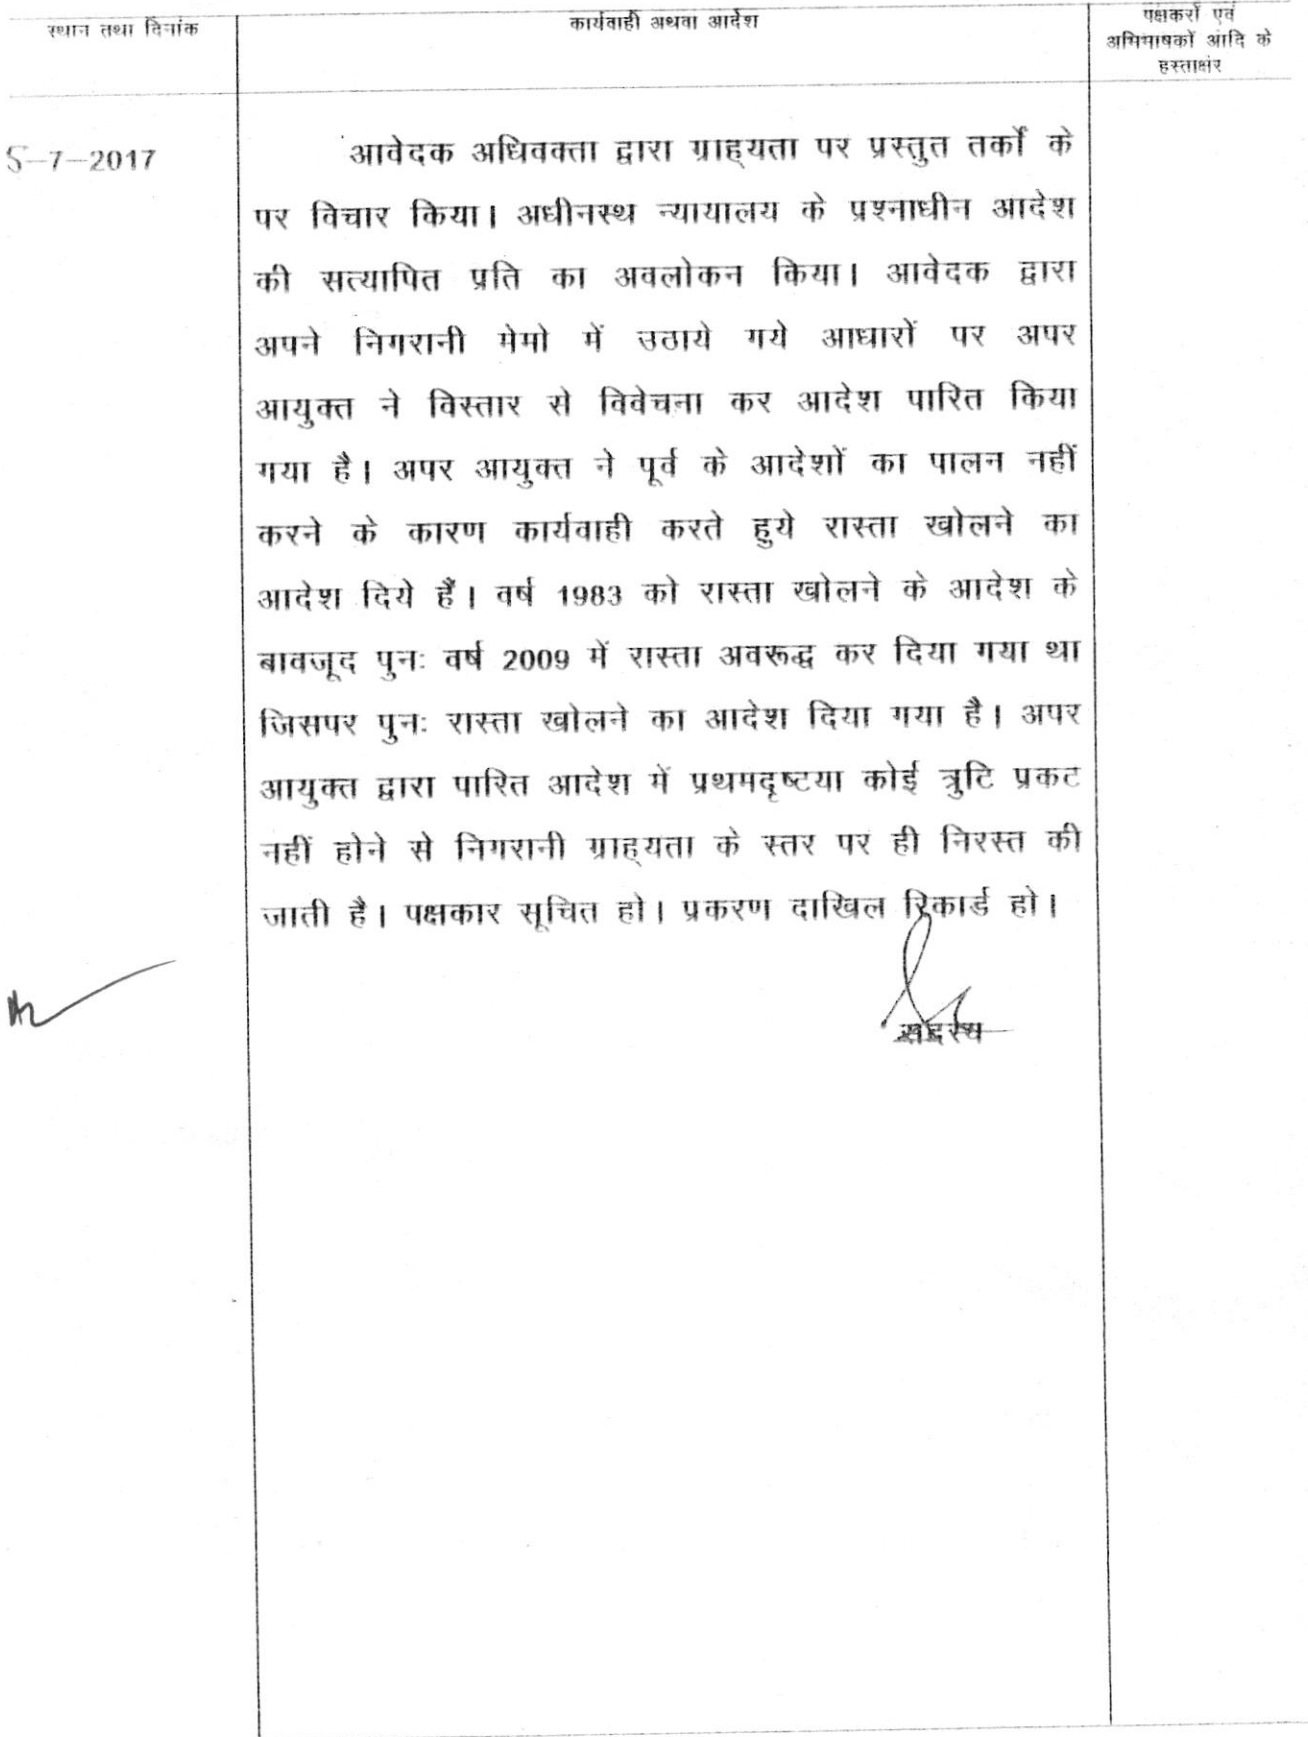 स्थान तथा दिनांक
कार्यवाही अथवा आदेश
पक्षकारों एवं
अभिभाषकों आदि के
हस्ताक्षर
5-7-2017
आवेदक अधिवक्ता द्वारा ग्राह्यता पर प्रस्तुत तर्कों के
पर विचार किया। अधीनस्थ न्यायालय के प्रश्नाधीन आदेश
की सत्यापित प्रति का अवलोकन किया। आवेदक द्वारा
अपने निगरानी मेमो में उठाये गये आधारों पर अपर
आयुक्त ने विस्तार से विवेचना कर आदेश पारित किया
गया है। अपर आयुक्त ने पूर्व के आदेशों का पालन नहीं
करने के कारण कार्यवाही करते हुये रास्ता खोलने का
आदेश दिये हैं। वर्ष 1983 को रास्ता खोलने के आदेश के
बावजूद पुनः वर्ष 2009 में रास्ता अवरूद्ध कर दिया गया था
जिसपर पुनः रास्ता खोलने का आदेश दिया गया है। अपर
आयुक्त द्वारा पारित आदेश में प्रथमदृष्टया कोई त्रुटि प्रकट
नहीं होने से निगरानी ग्राह्यता के स्तर पर ही निरस्त की
जाती है। पक्षकार सूचित हो। प्रकरण दाखिल रिकार्ड हो।
सदस्य